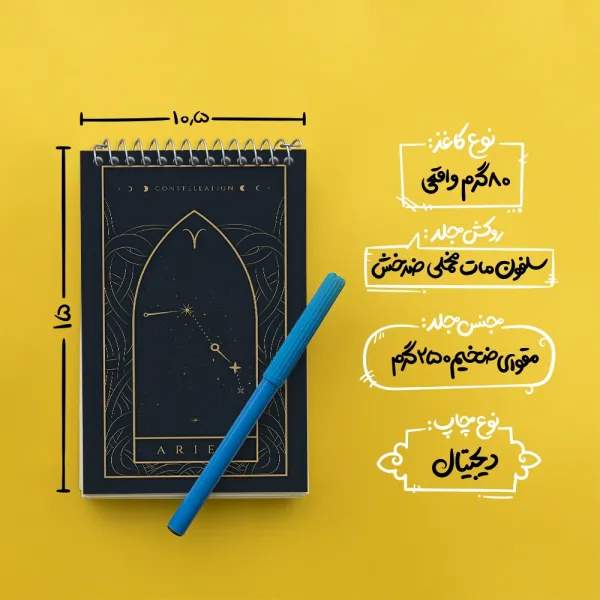 ۱۰٫۵
۱۵
CONSTELLATION
ARIE
نوع کاغذ:
۸۰گرم واقعی
روکش جلد:
سلفون مات مخملی ضدخش
جنس جلد:
مقوای ضخیم ۲۵۰گرم
نوع چاپ:
دیجیتال